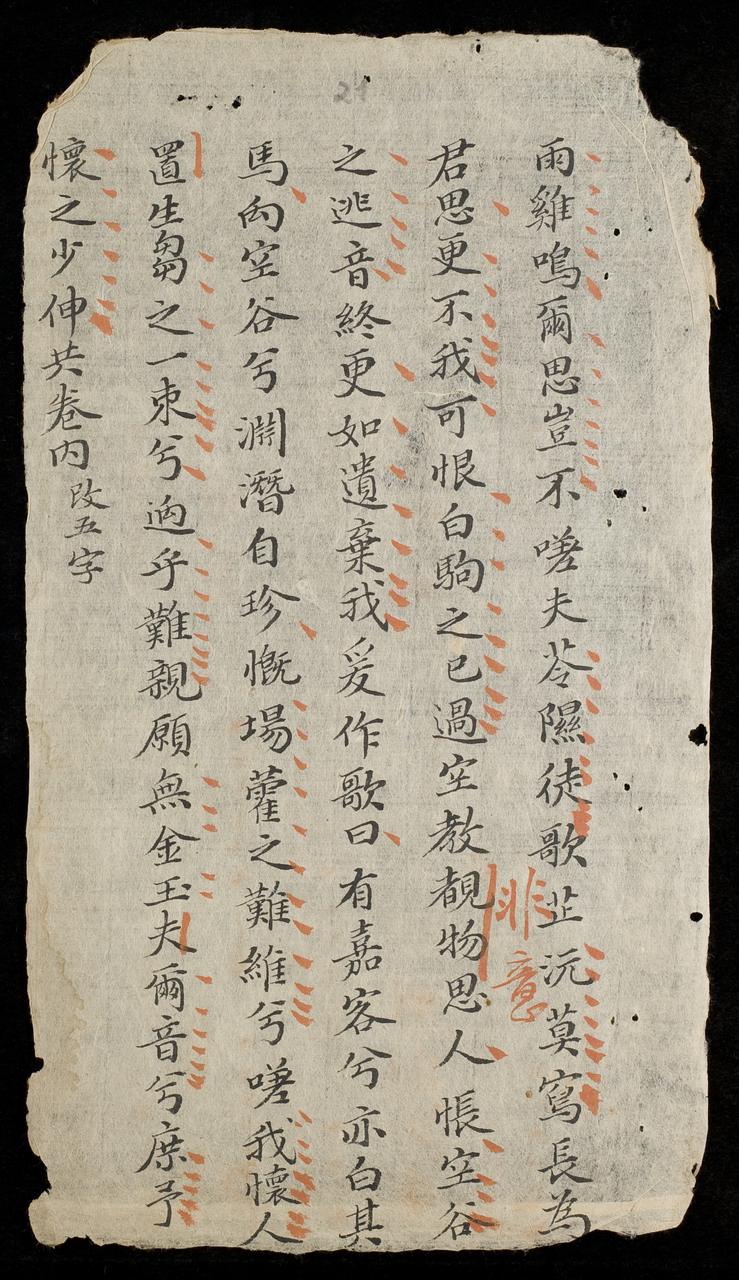 雨雞鳴爾思豈不嗟夫苓隰徒歌芷沅莫寫長為
君思更不我可恨白駒之已過空教覩物思人悵空谷
非意
之逃音終更如遺棄我爰作歌曰有嘉客兮亦白其
馬向空谷兮淵潛自珍慨場藿之難維兮嗟我懷人
置生芻之一束兮逈乎難親願無金玉夫爾音兮庶予
懷之少伸共卷内改五字
21